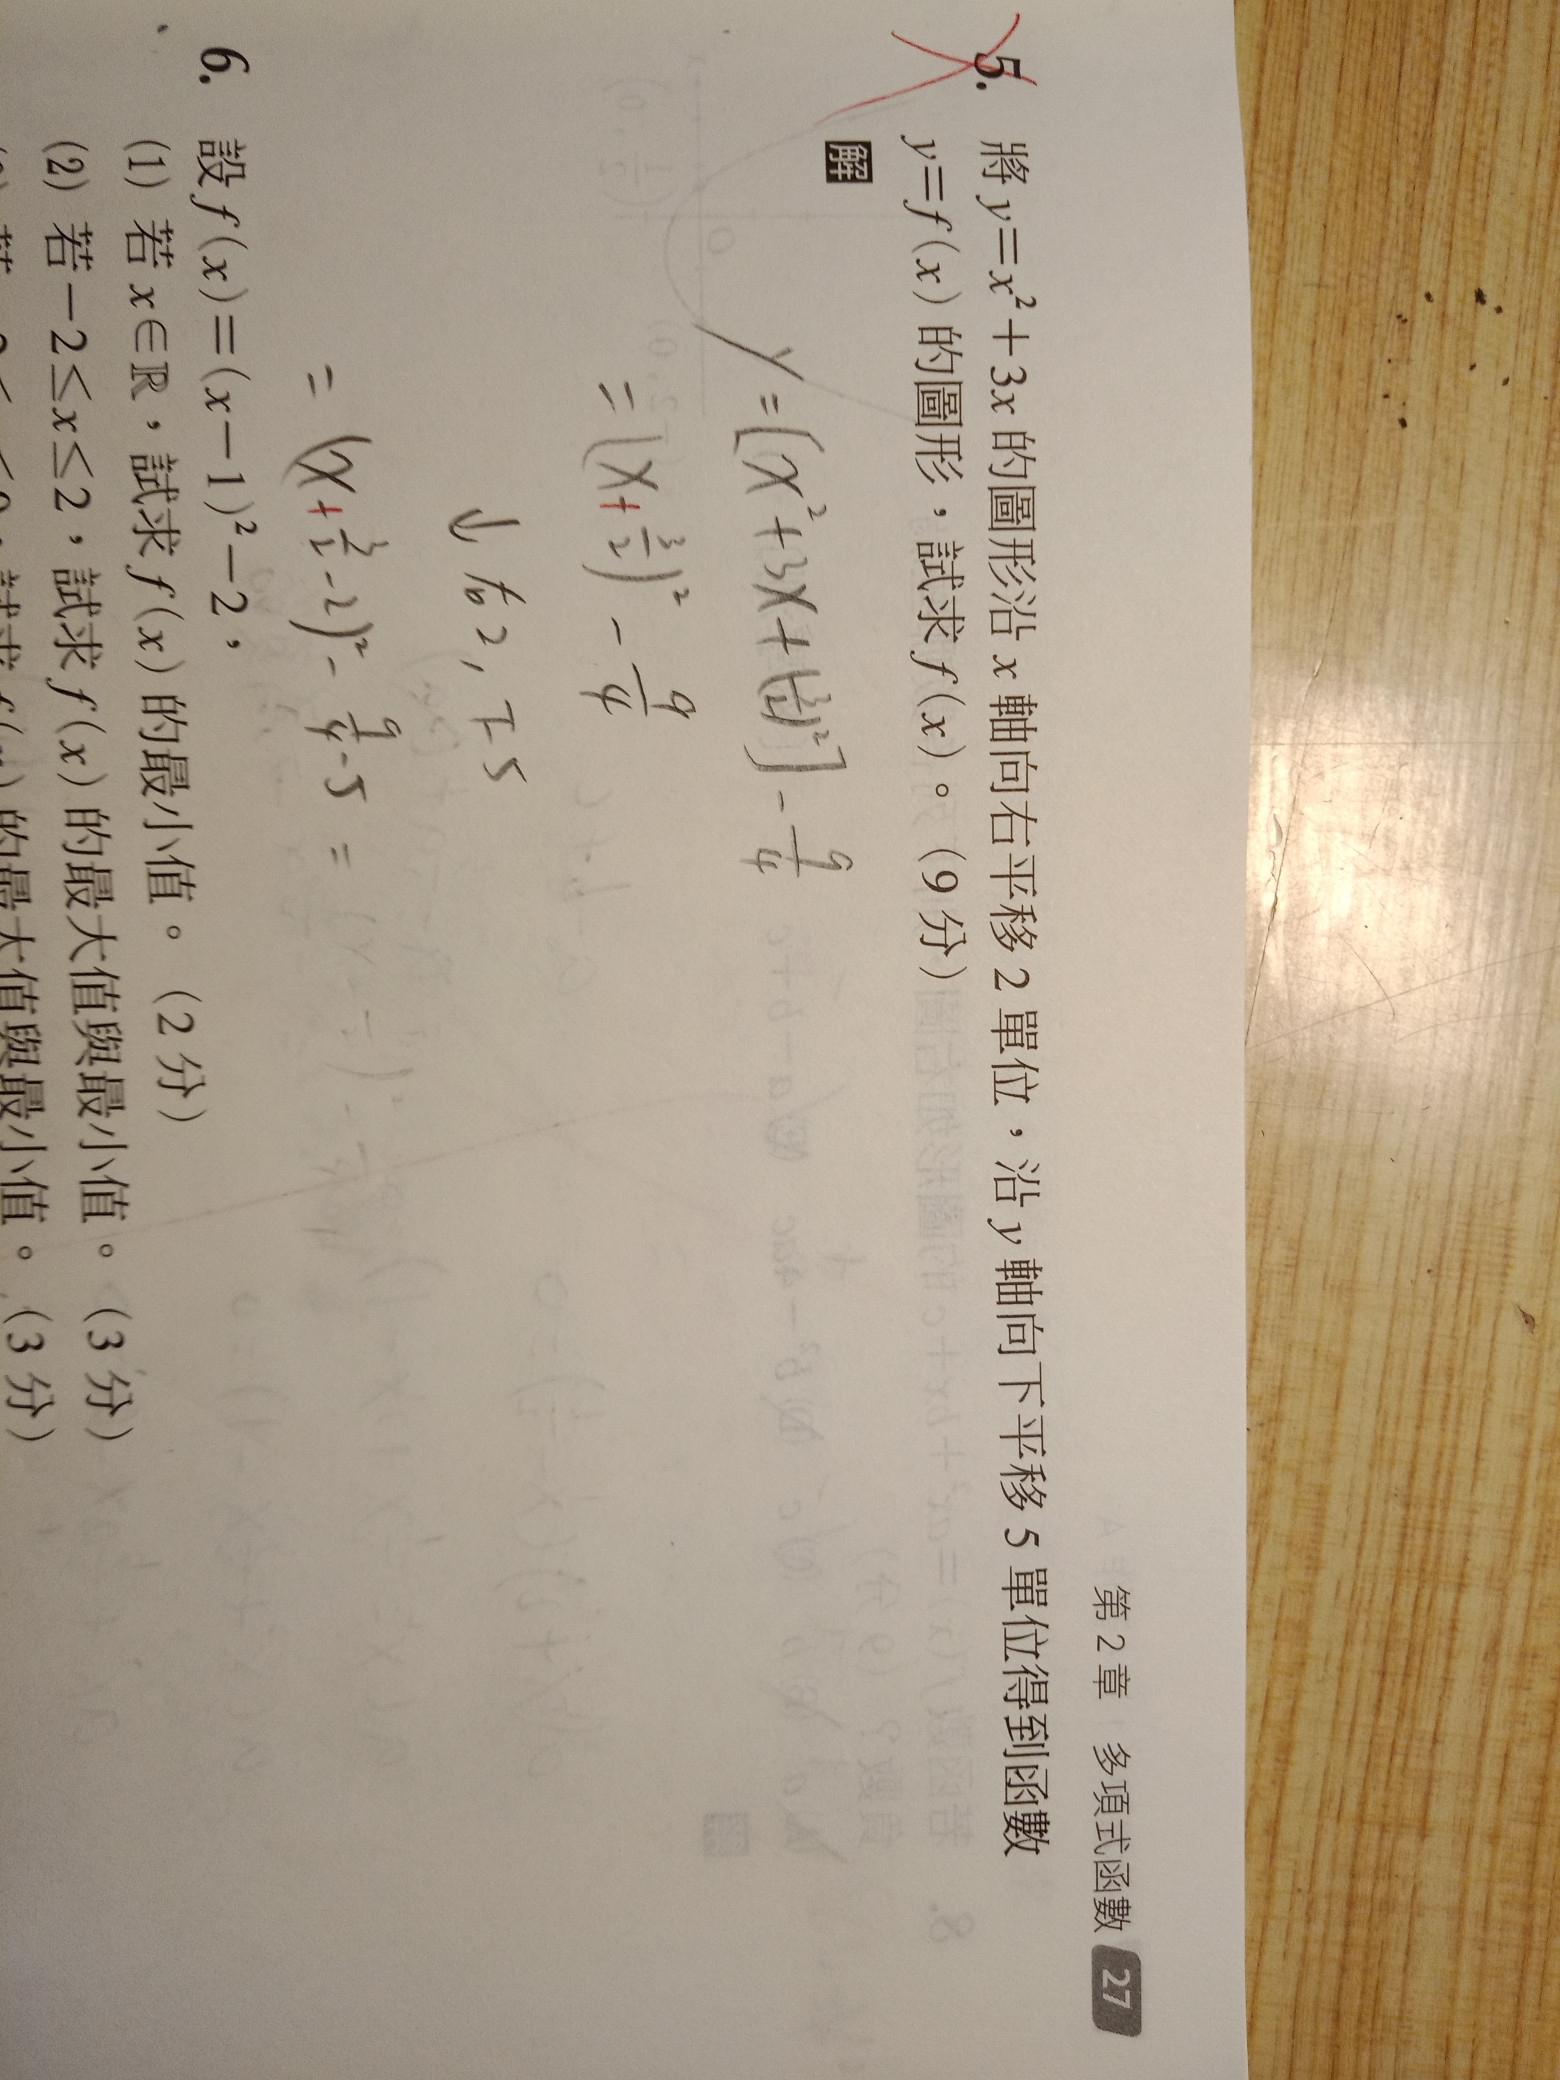 第 2 章 多項式函數 27
5. 將 y＝x²＋3x 的圖形沿 x 軸向右平移 2 單位，沿 y 軸向下平移 5 單位得到函數
y＝f(x) 的圖形，試求 f(x)。（9 分）
解
y = [x² + 3x + (3/2)²] - 9/4
= (x + 3/2)² - 9/4
↓ 右2, 下5
= (x + 3/2 - 2)² - 9/4 - 5 =
6. 設 f(x)＝(x－1)²－2，
(1) 若 x∈ℝ，試求 f(x) 的最小值。（2 分）
(2) 若 －2≤x≤2，試求 f(x) 的最大值與最小值。（3 分）
試求 f(x) 的最大值與最小值。（3 分）